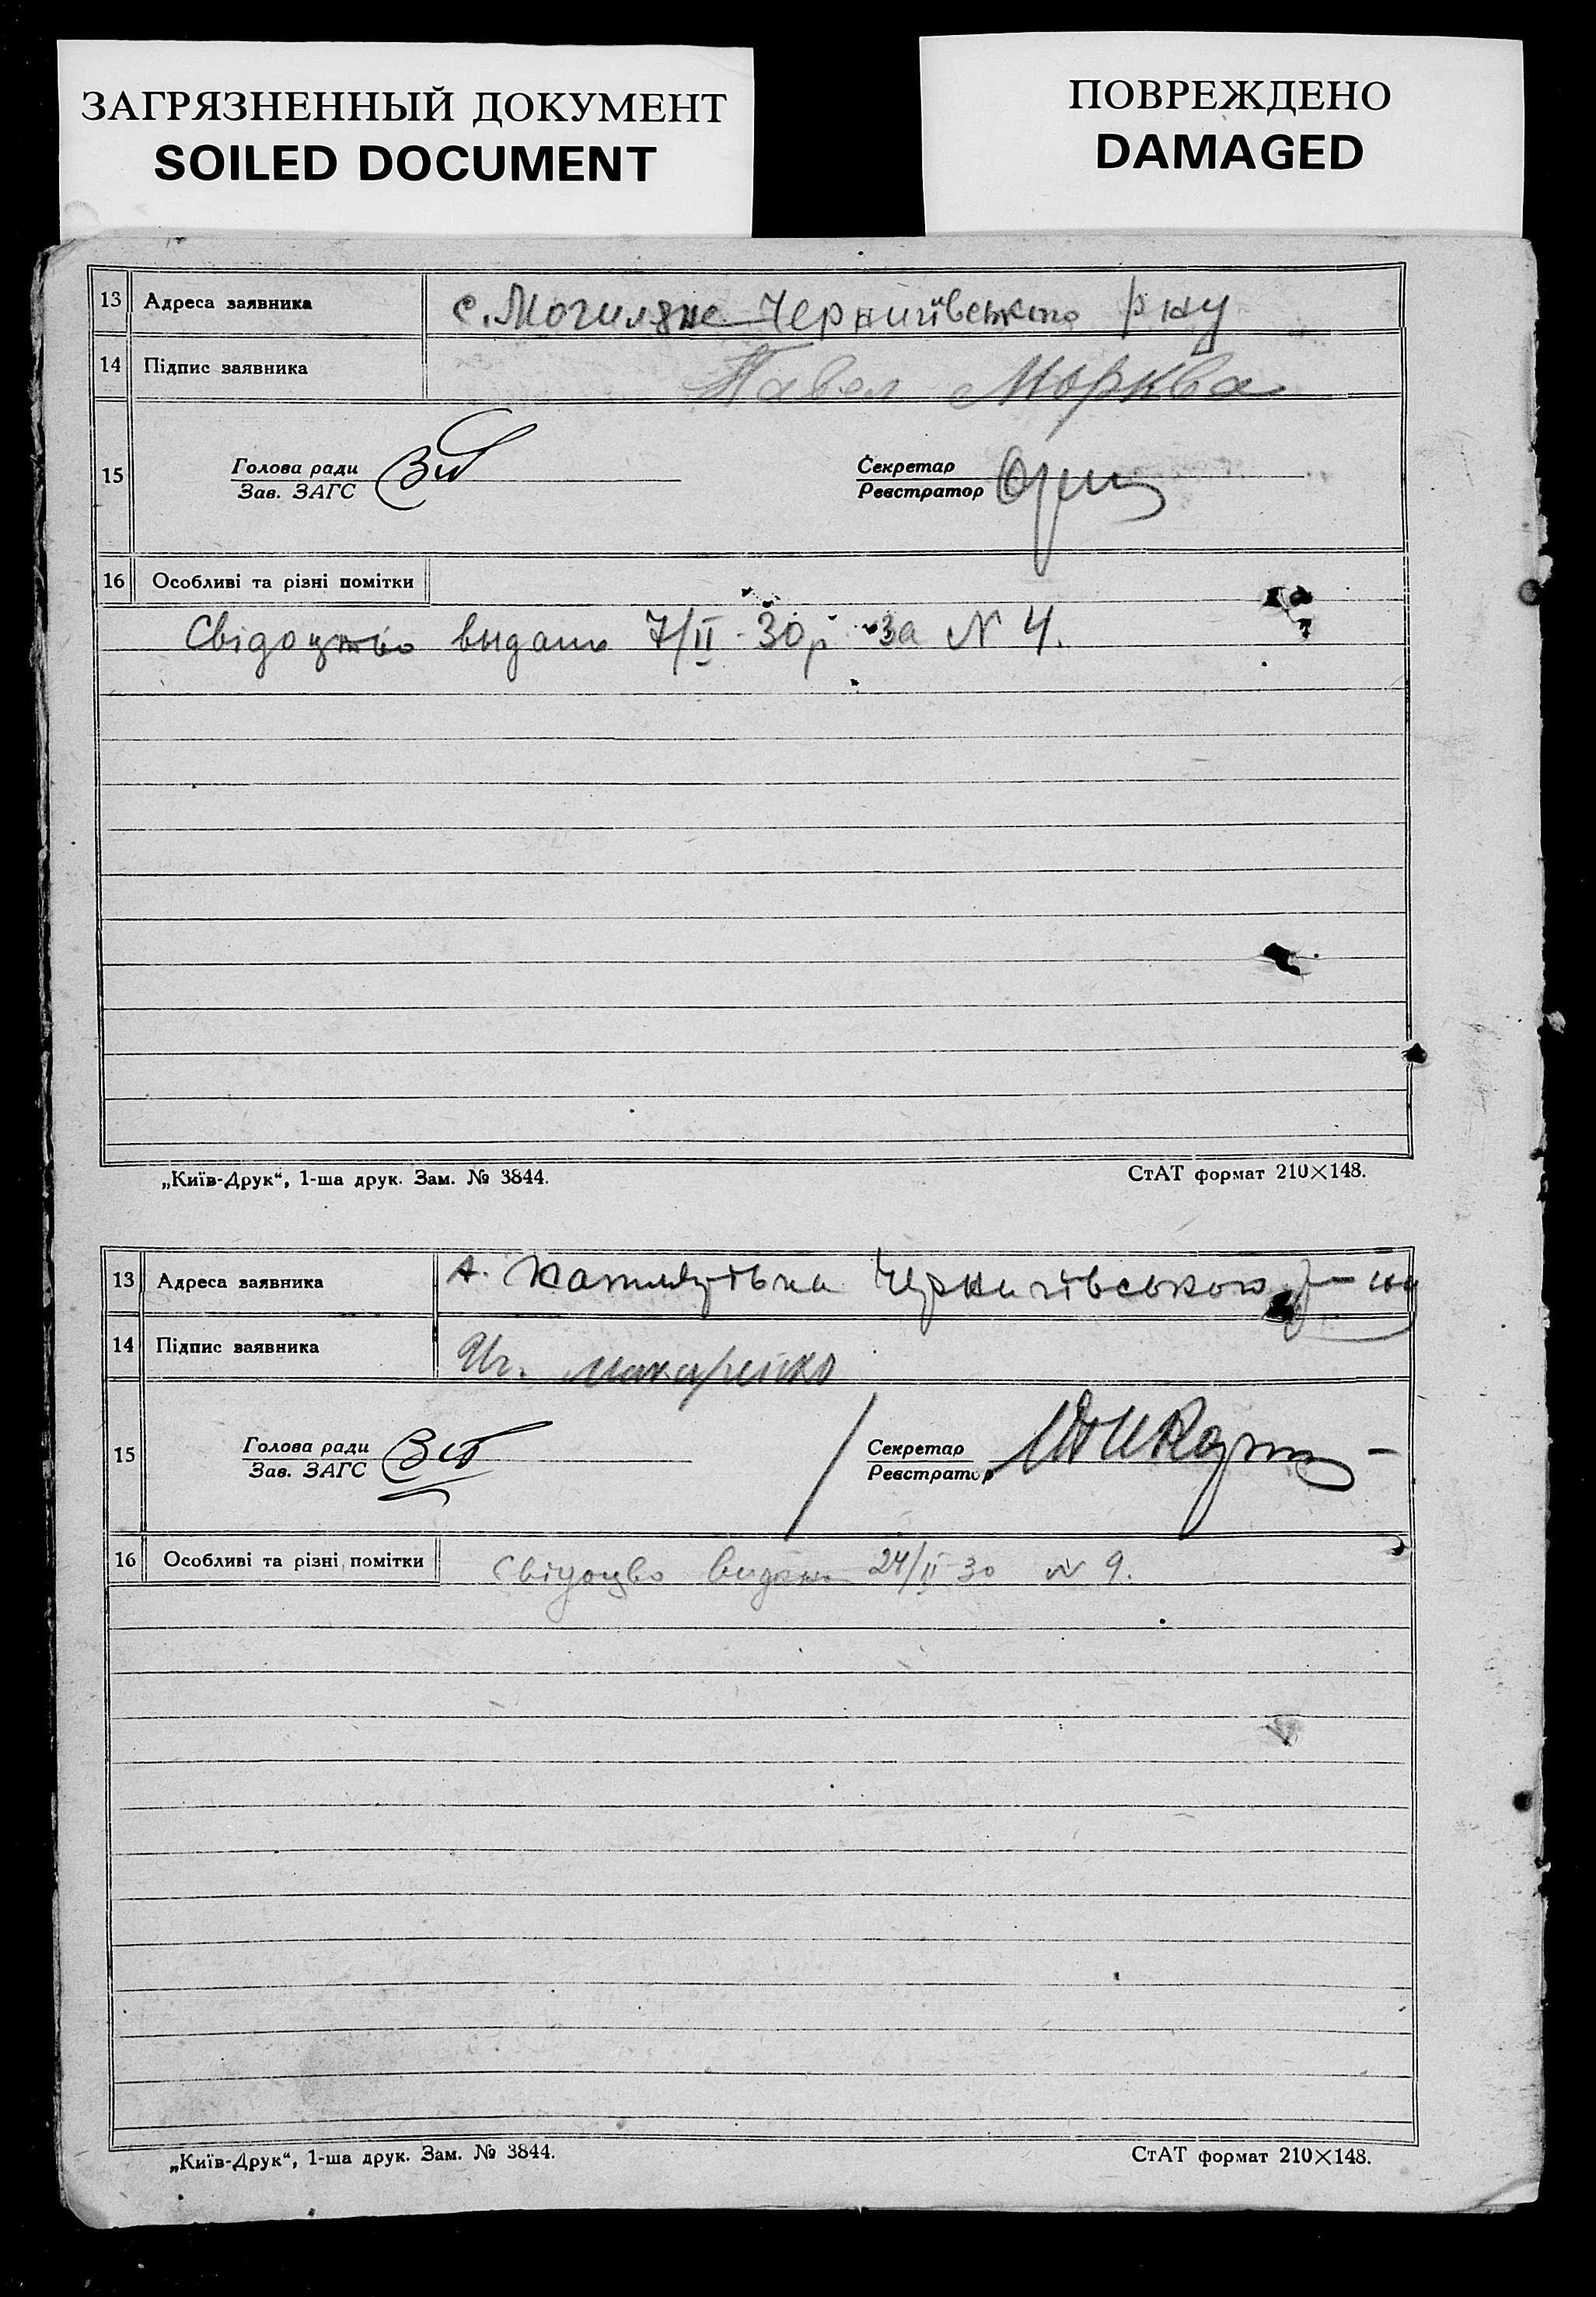 ЗАГРЯЗНЕННЫЙ ДОКУМЕНТ
SOILED DOCUMENT
ПОВРЕЖДЕНО
DAMAGED
13 Адреса заявника с. Могиляне Чернигівського р ну
14 Підпис заявника Павел Морква
15 Голова ради Секретар
Зав. ЗАГС Реєстратор
16 Особливі та різні помітки
Свідоцтво видано 7/II-30р за N 4.
„Київ-Друк“, 1-ша друк. Зам. № 3844. СтАТ формат 210×148.
13 Адреса заявника Чернигівського р-ну
14 Підпис заявника Макаренко
15 Голова ради Секретар
Зав. ЗАГС Реєстратор
16 Особливі та різні помітки Свідоцво видано 24/II-30 N 9.
„Київ-Друк“, 1-ша друк. Зам. № 3844. СтАТ формат 210×148.